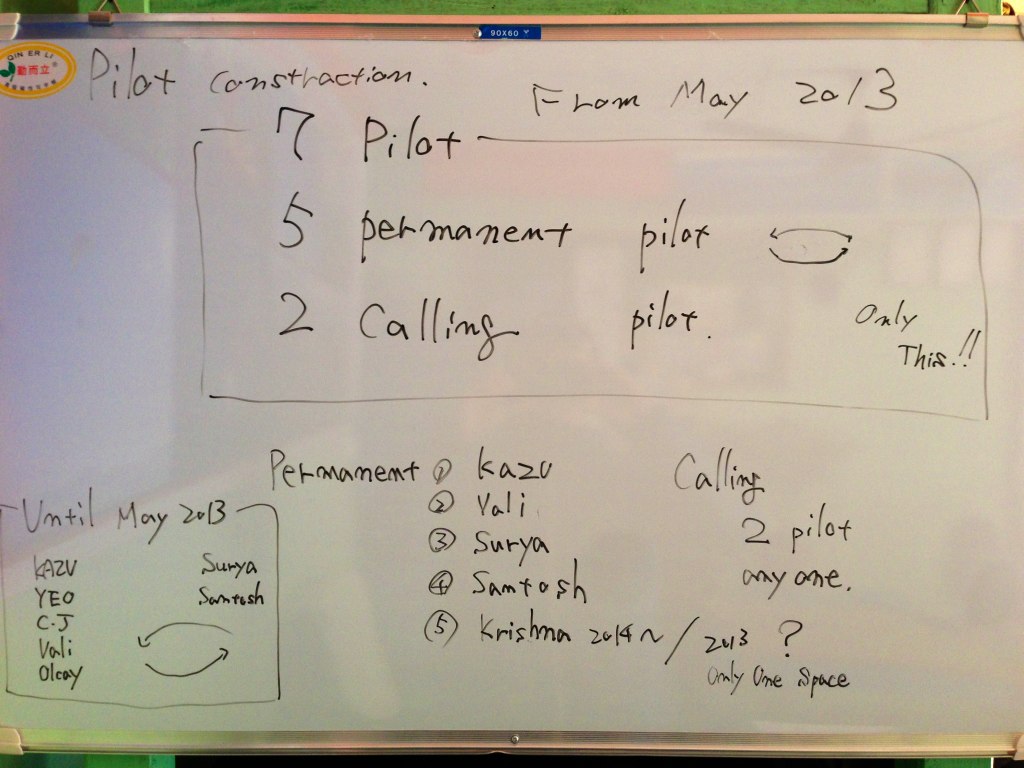 90X60
QIN ER LI
勤而立
Pilot constraction.
From May 2013
7 Pilot
5 permanent pilot
2 Calling pilot.
Only
This!!
Permanent ① Kazu
② Vali
③ Surya
④ Santosh
⑤ Krishna 2014~ / 2013 ?
Only One Space
Calling
2 pilot
any one.
Until May 2013
KAZU Surya
YEO Santosh
C.J
Vali
Olcay